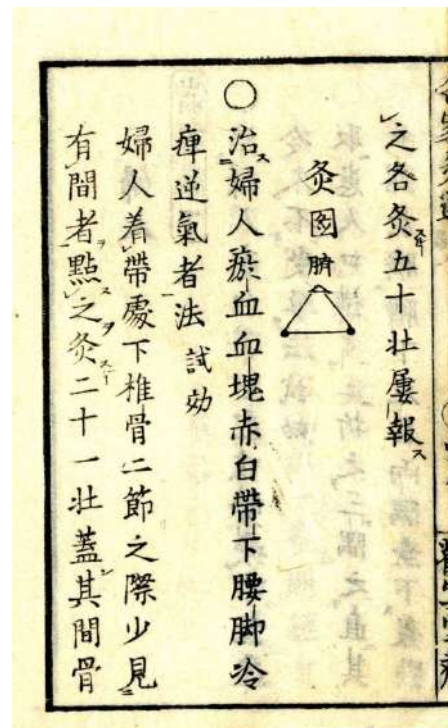 之各灸五十壮屡報ス
灸圖 臍
○治ス婦人瘀血血塊赤白帶下腰脚冷
痺逆氣者法 試効
婦人着帶處下椎骨二節之際少見
有間者點之灸二十一壮蓋其間骨